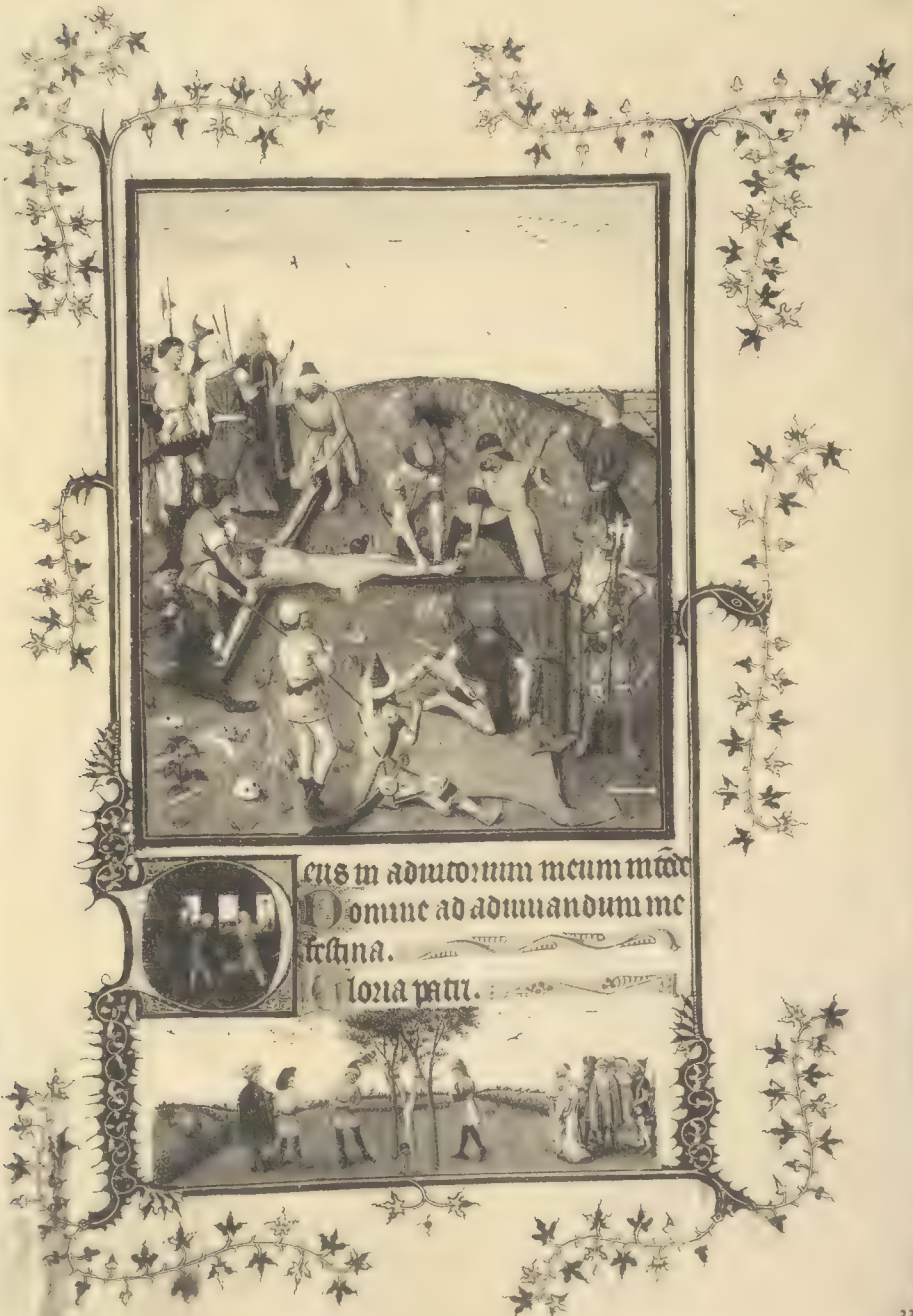 Deus in adiutorium meum intēde
Domine ad adiuuandum me
festina.
Gloria patri.